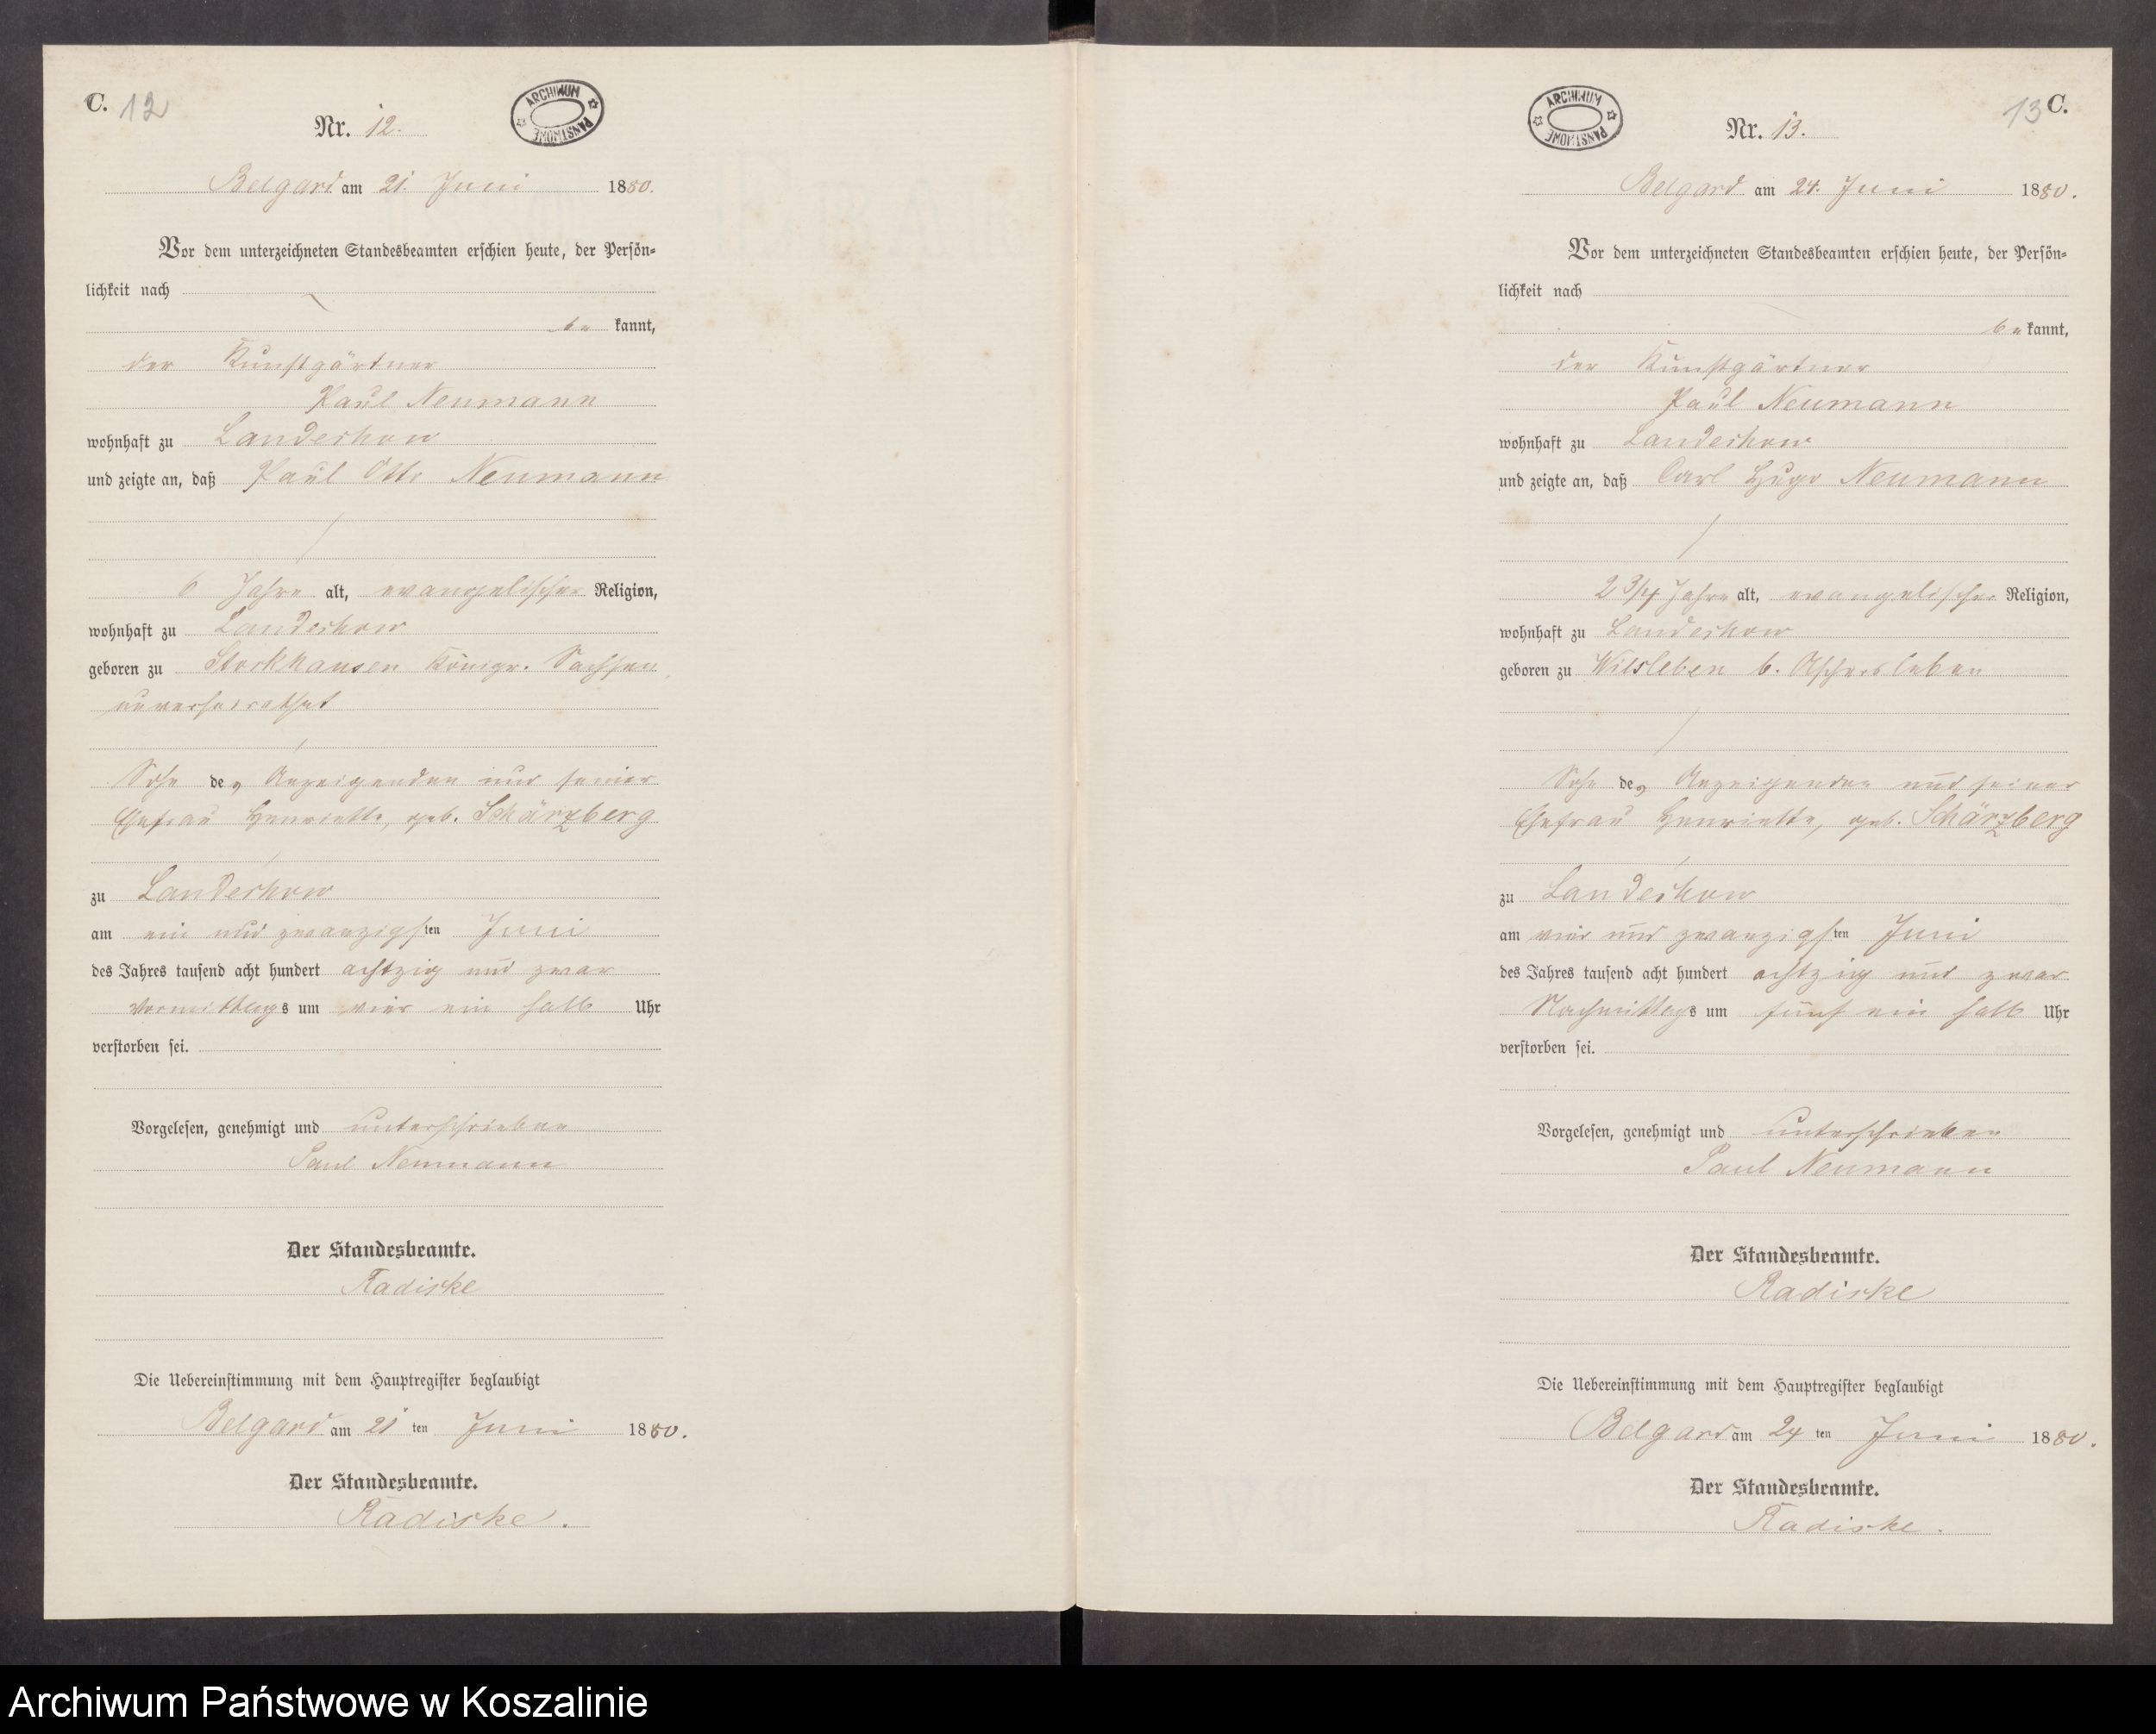 C. 12
Nr. 12.
ARCHIWUM PAŃSTWOWE
Belgard am 21. Juni 1880.
Vor dem unterzeichneten Standesbeamten erschien heute, der Persön-
lichkeit nach
be kannt,
der Kunstgärtner
Paul Neumann
wohnhaft zu Landechow
und zeigte an, daß Paul Otto Neumann
6 Jahre alt, evangelischer Religion,
wohnhaft zu Landechow
geboren zu Stockhausen Königr. Sachsen
unverheirathet
Sohn des Anzeigenden und seiner
Ehefrau Henriette, geb. Schärzberg
zu Landechow
am ein und zwanzigsten Juni
des Jahres tausend acht hundert achtzig und zwar
Vormittags um vier ein halb Uhr
verstorben sei.
Vorgelesen, genehmigt und unterschrieben
Paul Neumann
Der Standesbeamte.
Radiske
Die Uebereinstimmung mit dem Hauptregister beglaubigt
Belgard am 21 ten Juni 1880.
Der Standesbeamte.
Radiske.
13 C.
ARCHIWUM PAŃSTWOWE
Nr. 13.
Belgard am 24. Juni 1880.
Vor dem unterzeichneten Standesbeamten erschien heute, der Persön-
lichkeit nach
be kannt,
der Kunstgärtner
Paul Neumann
wohnhaft zu Landechow
und zeigte an, daß Carl Hugo Neumann
2 3/4 Jahre alt, evangelischer Religion,
wohnhaft zu Landechow
geboren zu Wilsleben b. Aschersleben
Sohn des Anzeigenden und seiner
Ehefrau Henriette, geb. Schärzberg
zu Landechow
am vier und zwanzigsten Juni
des Jahres tausend acht hundert achtzig und zwar
Nachmittags um fünf ein halb Uhr
verstorben sei.
Vorgelesen, genehmigt und unterschrieben
Paul Neumann
Der Standesbeamte.
Radiske
Die Uebereinstimmung mit dem Hauptregister beglaubigt
Belgard am 24 ten Juni 1880.
Der Standesbeamte.
Radiske.
Archiwum Państwowe w Koszalinie